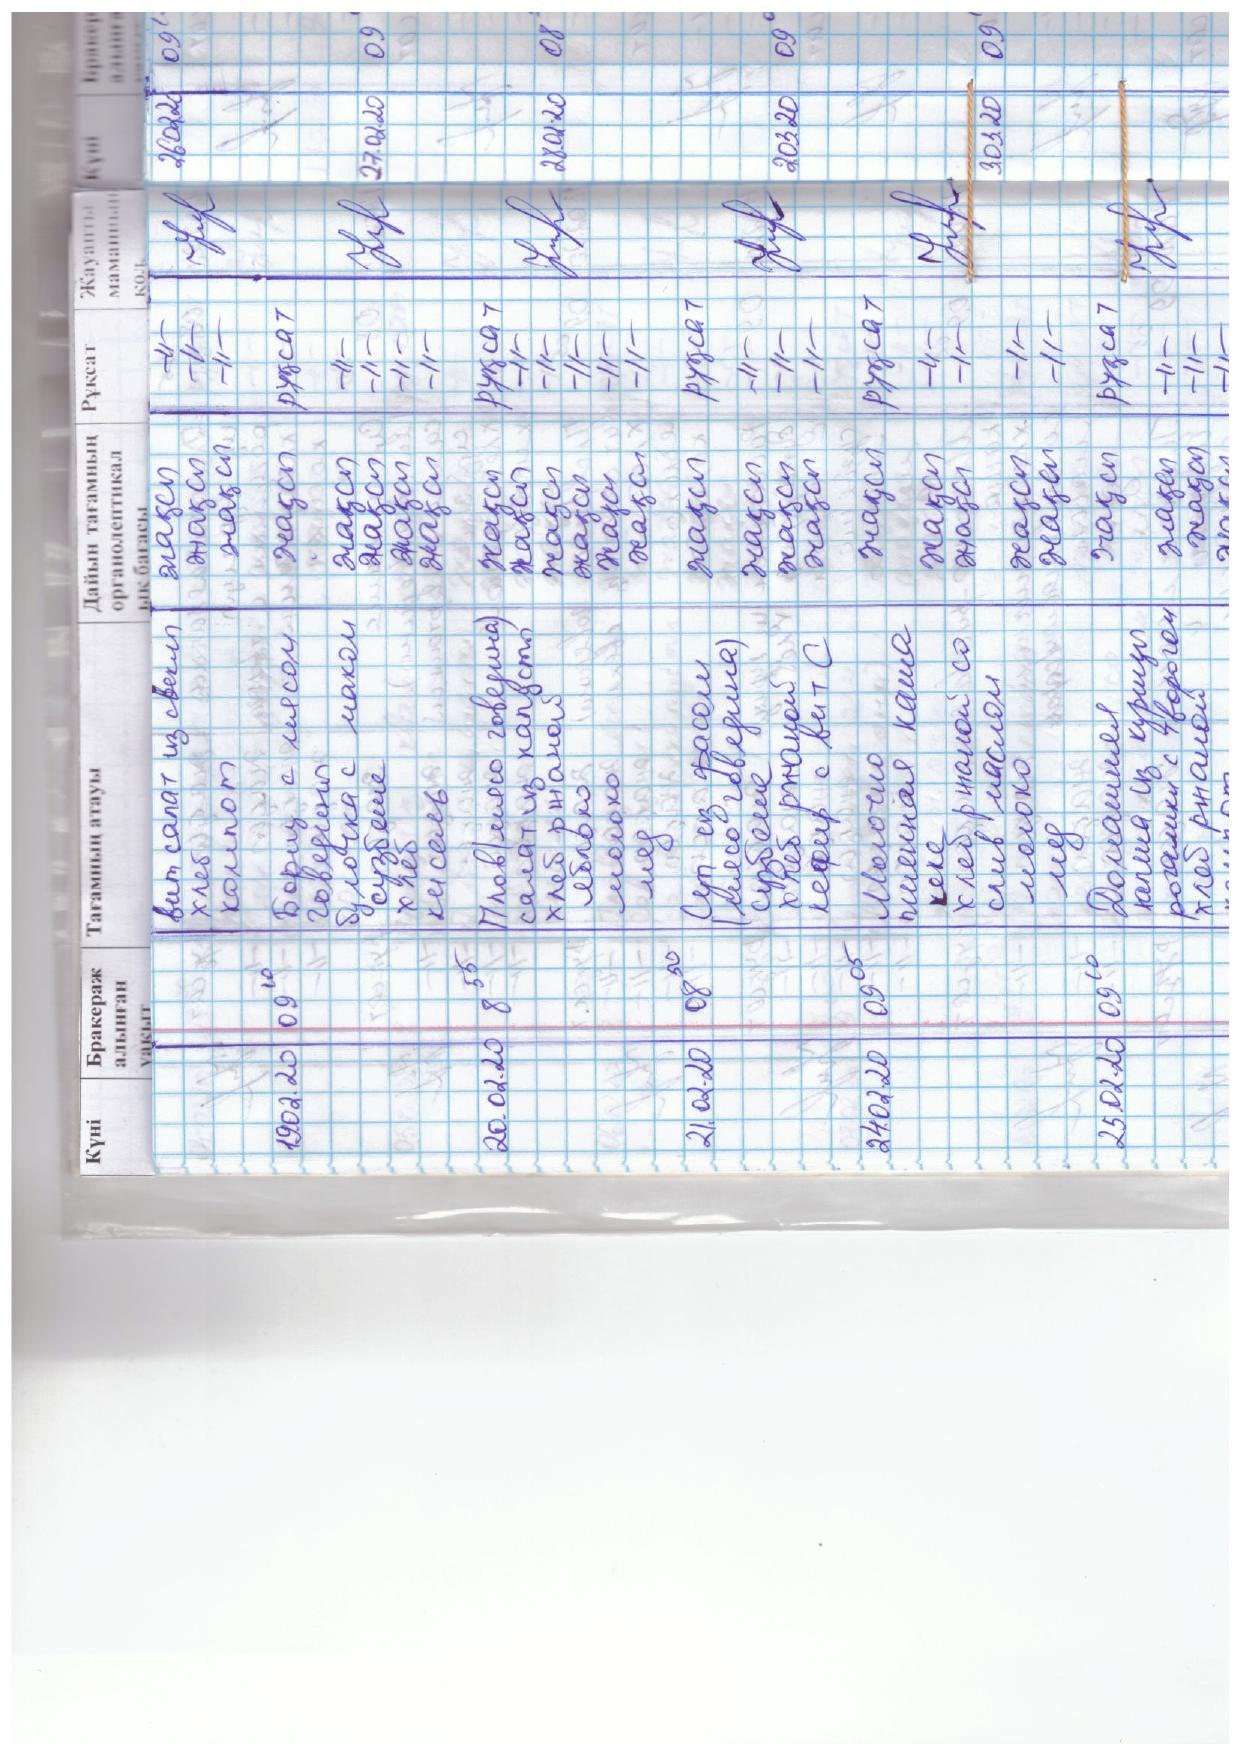 Күні Бракераж алынған уақыт Тағамның атауы Дайын тағамның органолептикал ық бағасы Рұқсат Жауапты маманның қол Күні Бракер
вит салат из свекл жақсы -//- 26.02.20 09
хлеб жақсы -//-
компот жақсы -//-
19.02.20 09 10 Борщ с мясом жақсы рұқсат
говядины
булочка с маком жақсы -//- 27.02.20 09
сузбеше жақсы -//-
хлеб жақсы -//-
кисель жақсы -//-
20.02.20 8 55 Плов (мясо говядина) жақсы рұқсат
салат из капусты жақсы -//-
хлеб ржаной жақсы -//- 28.02.20 08
яблоко жақсы -//-
молоко жақсы -//-
мед жақсы -//-
21.02.20 08 50 Суп из фасоли жақсы рұқсат
(мясо говядина)
сузбеше жақсы -//-
хлеб ржаной жақсы -//- 2.03.20 09
кефир с вит С жақсы -//-
24.02.20 09 05 Молочно жақсы рұқсат
пшенная каша
кекс жақсы -//-
хлеб ржаной со жақсы -//-
слив маслом 3.03.20 09
молоко жақсы -//-
мед жақсы -//-
25.02.20 09 10 Домашняя жақсы рұқсат
лапша из курицы
рогалики с творогом жақсы -//-
хлеб ржаной жақсы -//-